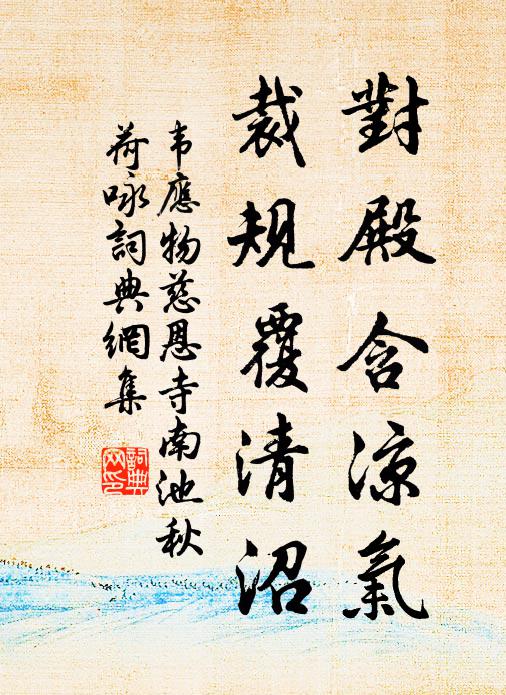 對殿含涼氣
裁規覆清沼
韦應物慈恩寺南池秋
荷咏詞典網集
詞典
网印